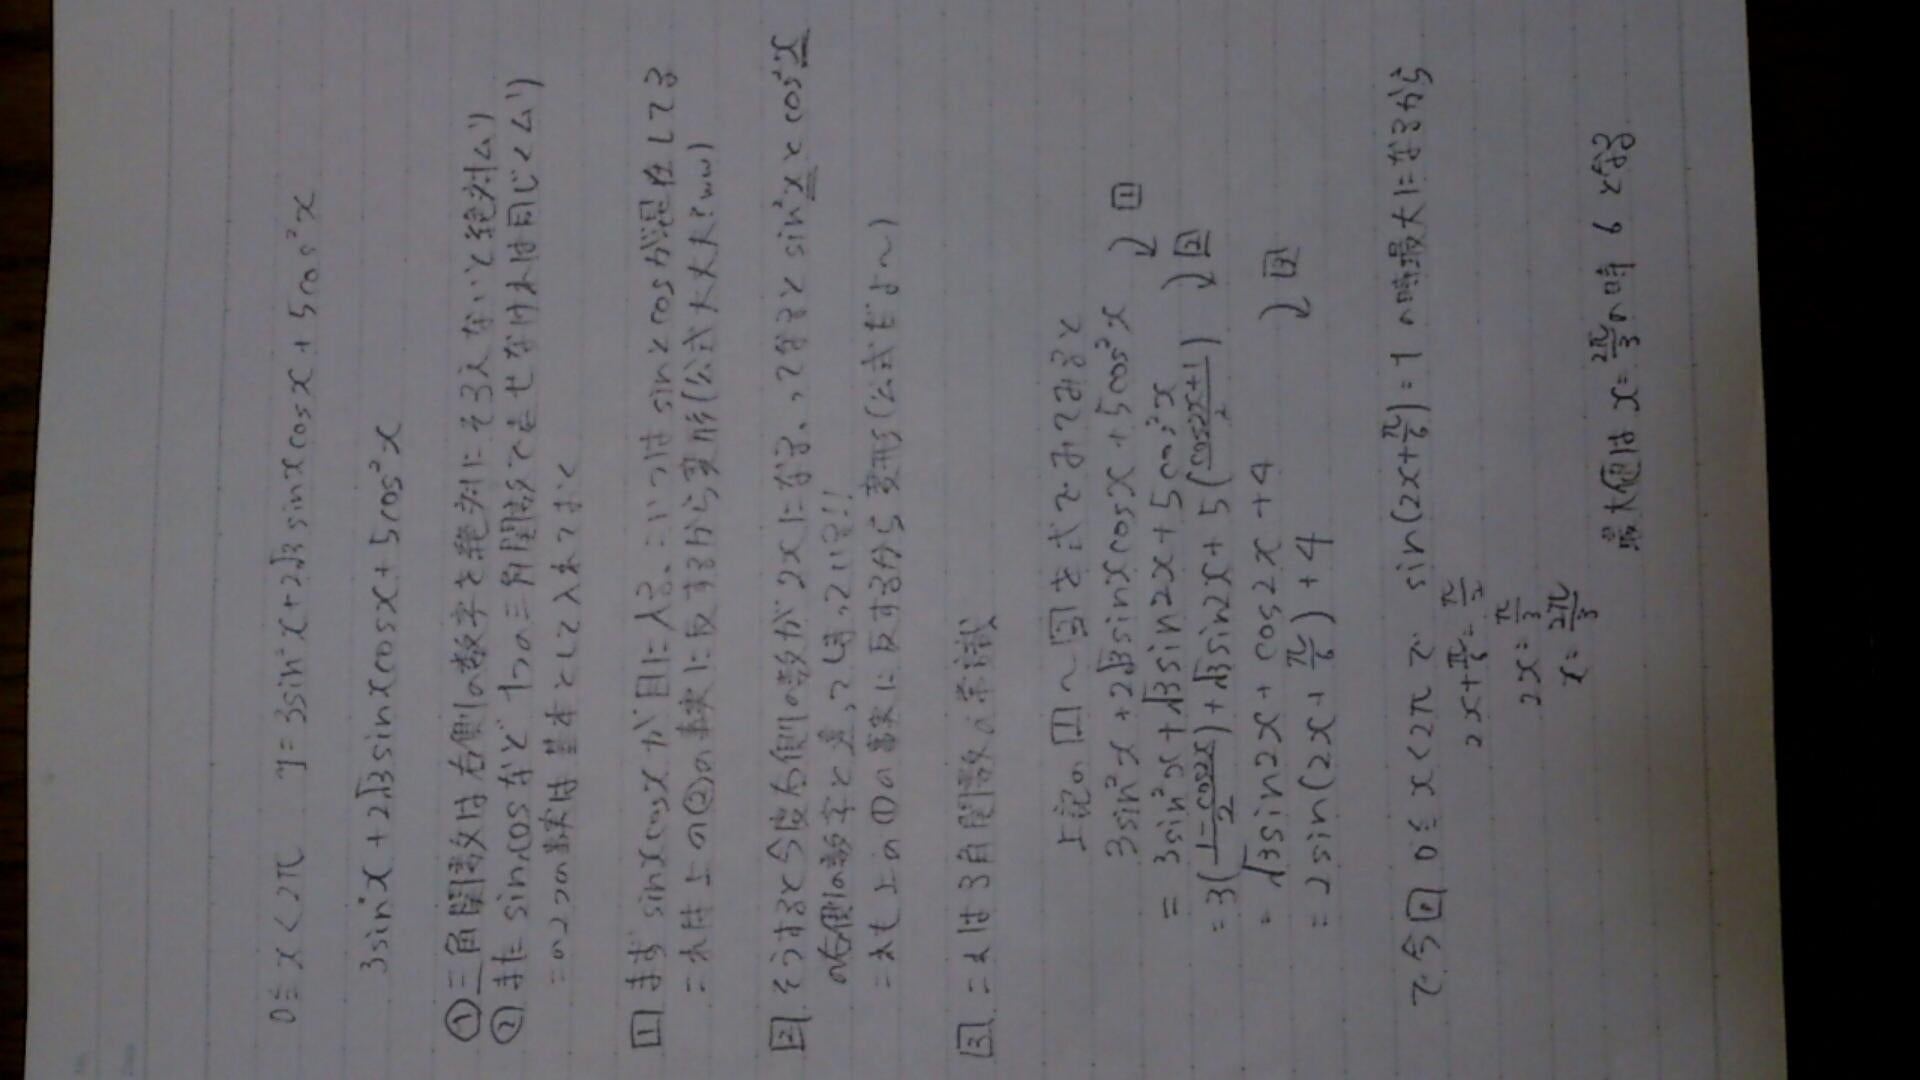 0≦x<2π y=3sin²x+2√3sinxcosx+5cos²x
3sin²x+2√3sinxcosx+5cos²x
①三角関数は右側の数字を絶対にそろえないと絶対ムリ
②またsin,cosなど1つの三角関数で表せなければ同じくムリ
この2つの事実は基本として入れておく
1 まずsinxcosxが目に入る、こいつはsinとcosが混在してる
これは上の②の事実に反するから変形(公式大丈夫?ww)
2 そうすると今度右側の数が2xになる、ってなるとsin²xとcos²x
の右側の数字と違ってしまっている!!
これも上の①の事実に反するから変形(公式だよ〜)
3 これは3角関数の常識
上記の1〜3を式でみてみると
3sin²x+2√3sinxcosx+5cos²x
⤵1
=3sin²x+√3sin2x+5cos²x
⤵2
=3(1-cos2x/2)+√3sin2x+5(cos2x+1/2)
=√3sin2x+cos2x+4
⤵3
=2sin(2x+π/6)+4
で今回0≦x<2πで sin(2x+π/6)=1の時最大になるから
2x+π/6=π/2
2x=π/3
x=2π/3
最大値はx=2π/3の時 6となる